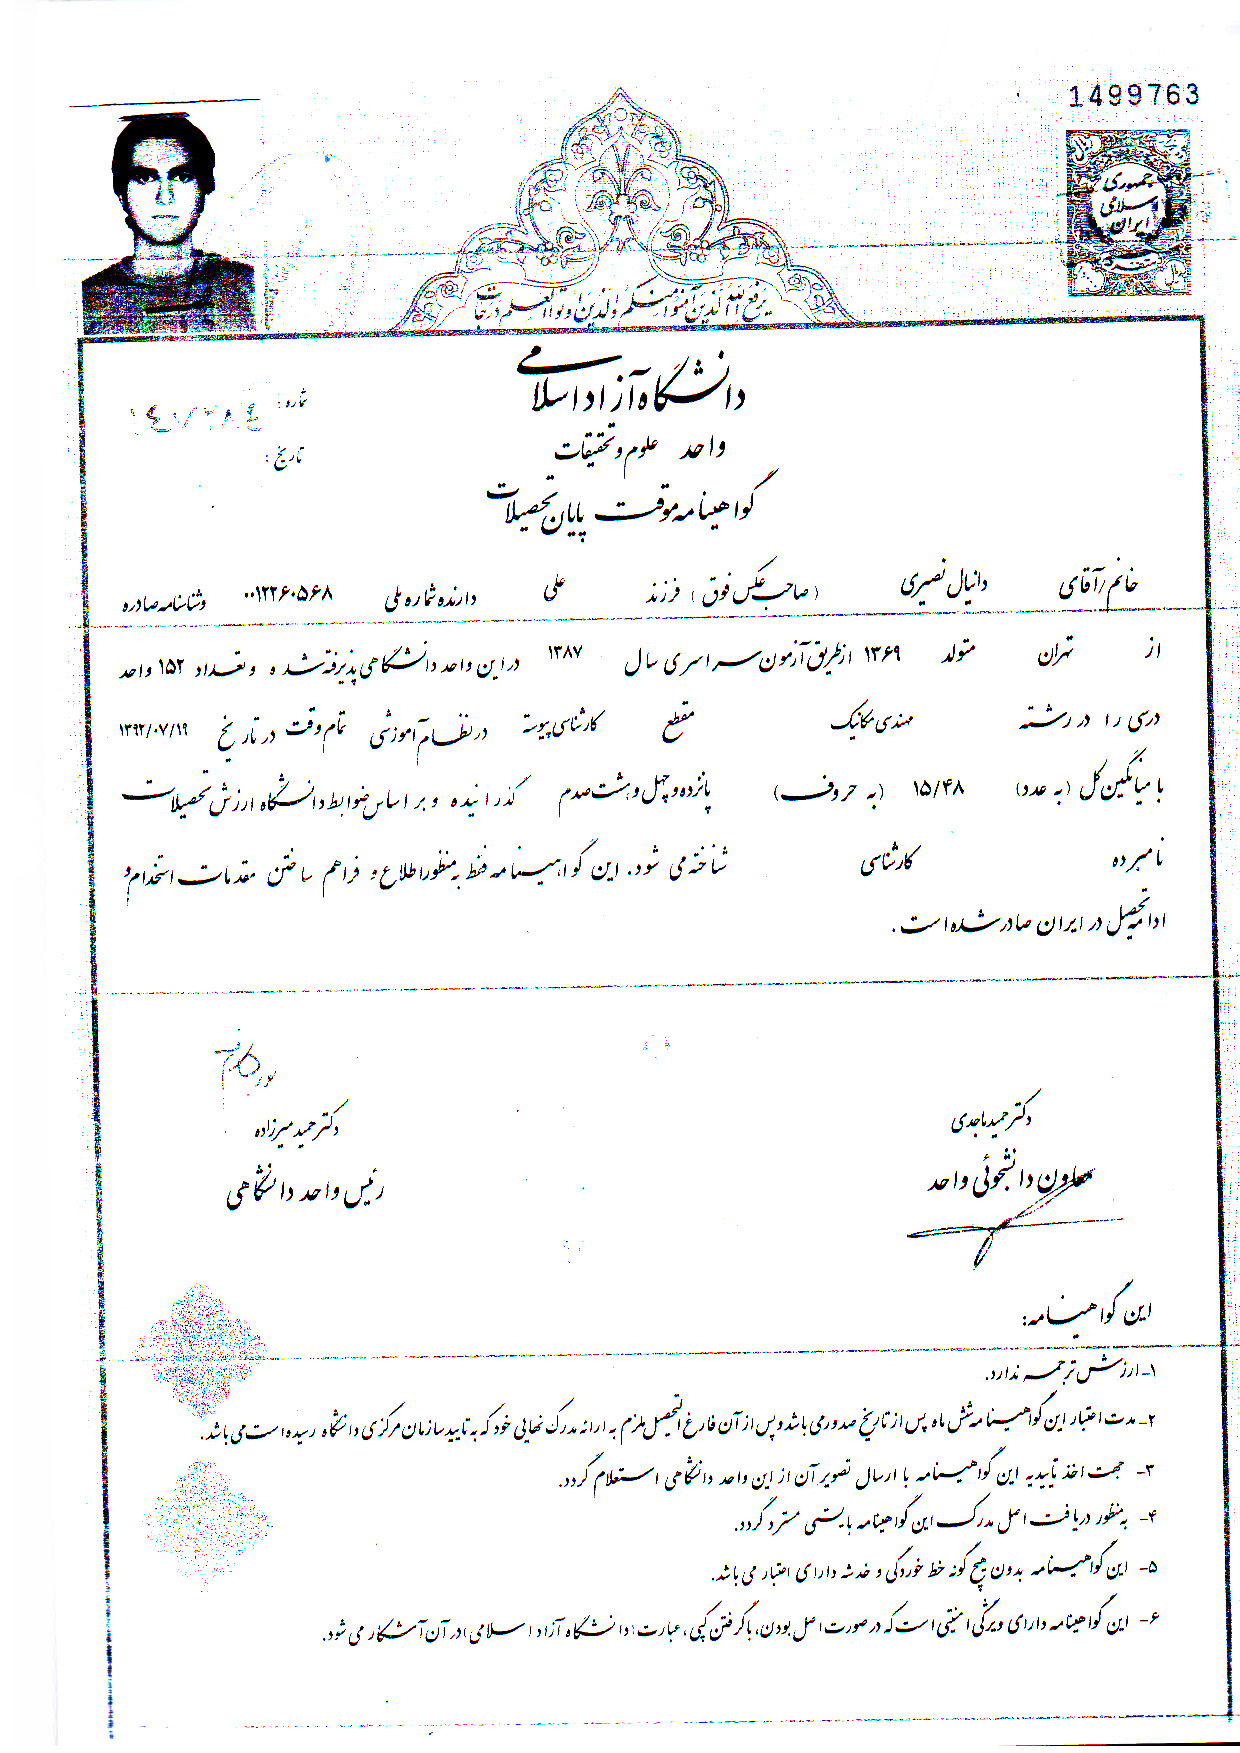 1499763
جمهوری
اسلامی
ایران
یرفع الله الذین آمنوا منکم والذین اوتوا العلم درجات
دانشگاه آزاد اسلامی
شماره:
واحد علوم و تحقیقات
تاریخ:
گواهینامه موقت پایان تحصیلات
خانم/آقای دانیال نصیری (صاحب عکس فوق) فرزند علی دارنده شماره ملی ۰۰۱۲۲۶۰۵۶۸ و شناسنامه صادره
از تهران متولد ۱۳۶۹ از طریق آزمون سراسری سال ۱۳۸۷ در این واحد دانشگاهی پذیرفته شده و تعداد ۱۵۲ واحد
درسی را در رشته مهندسی مکانیک مقطع کارشناسی پیوسته در نظام آموزشی تمام وقت در تاریخ ۱۳۹۲/۰۷/۱۹
با میانگین کل (به عدد) ۱۵/۴۸ (به حروف) پانزده و چهل و هشت صدم گذرانیده و بر اساس ضوابط دانشگاه ارزش تحصیلات
نامبرده کارشناسی شناخته می شود. این گواهینامه فقط به منظور اطلاع و فراهم ساختن مقدمات استخدام و
ادامه تحصیل در ایران صادر شده است.
دکتر حمید ماجدی
معاون دانشجوئی واحد
دکتر حمید میرزاده
رئیس واحد دانشگاهی
این گواهینامه:
۱- ارزش ترجمه ندارد.
۲- مدت اعتبار این گواهینامه شش ماه پس از تاریخ صدور می باشد و پس از آن فارغ التحصیل ملزم به ارائه مدرک نهایی خود که به تایید سازمان مرکزی دانشگاه رسیده است می باشد.
۳- جهت اخذ تاییدیه این گواهینامه با ارسال تصویر آن از این واحد دانشگاهی استعلام گردد.
۴- به منظور دریافت اصل مدرک این گواهینامه بایستی مسترد گردد.
۵- این گواهینامه بدون هیچ گونه خط خوردگی و خدشه دارای اعتبار می باشد.
۶- این گواهینامه دارای ویژگی امنیتی است که در صورت اصل بودن، با گرفتن کپی، عبارت (دانشگاه آزاد اسلامی) در آن آشکار می شود.